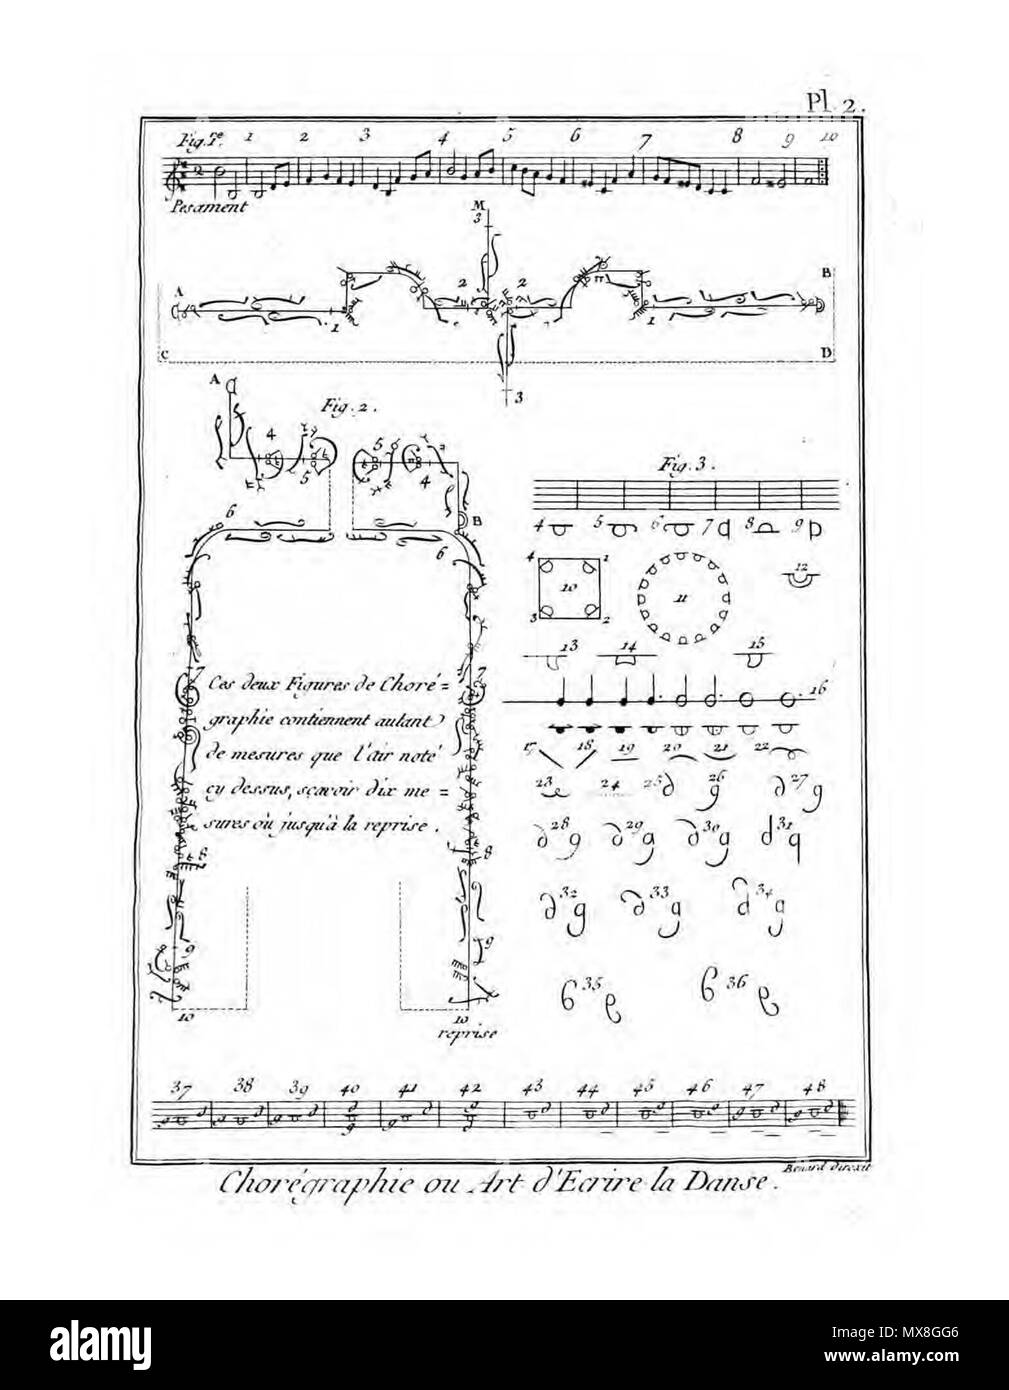 Pl. 2.
Fig. 1.re 1 2 3 4 5 6 7 8 9 10
2
Pesament
M
3
A 1 2 2 1 B
C D
3
A
Fig. 2.
4 5 5 4
B
6 6
7 7
Ces deux Figures de Choré=
graphie contiennent autant
de mesures que l'air noté
cy dessus, sçavoir dix me=
sures où jusqu'à la reprise.
8 8
9 9
10 10
reprise
Fig. 3.
4 5 6 7 8 9
4 1 10 3 2
11
12
13 14 15
16
17 18 19 20 21 22
23 24 25 26 27
28 29 30 31
32 33 34
35 36
37 38 39 40 41 42 43 44 45 46 47 48
Benard direxit
Chorégraphie ou Art d'Ecrire la Danse.
alamy
Image ID: MX8GG6
www.alamy.com